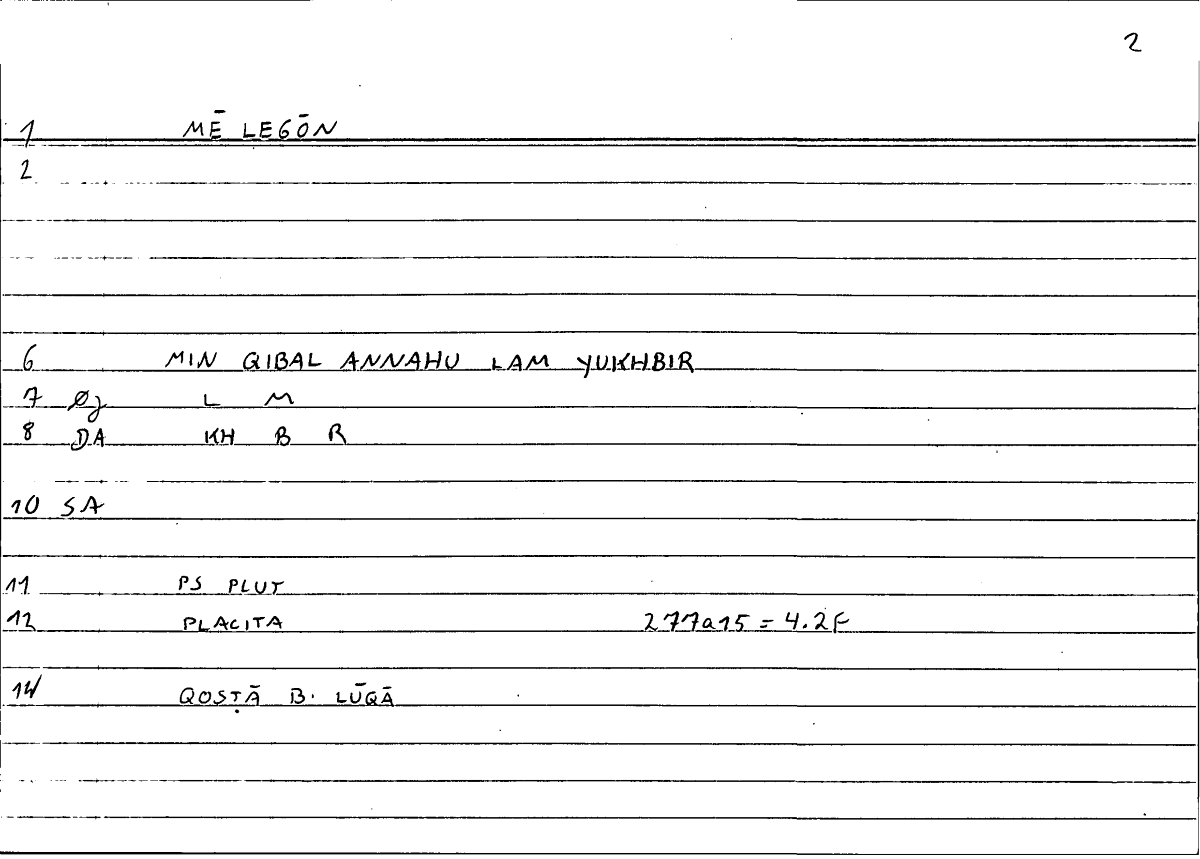 2
1 MĒ LEGŌN
2
6 MIN QIBAL ANNAHU LAM YUKHBIR
7 Øj L M
8 DA KH B R
10 SA
11 PS PLUT
12 PLACITA 277a15 = 4.2F
14 QOSṬĀ B. LŪQĀ